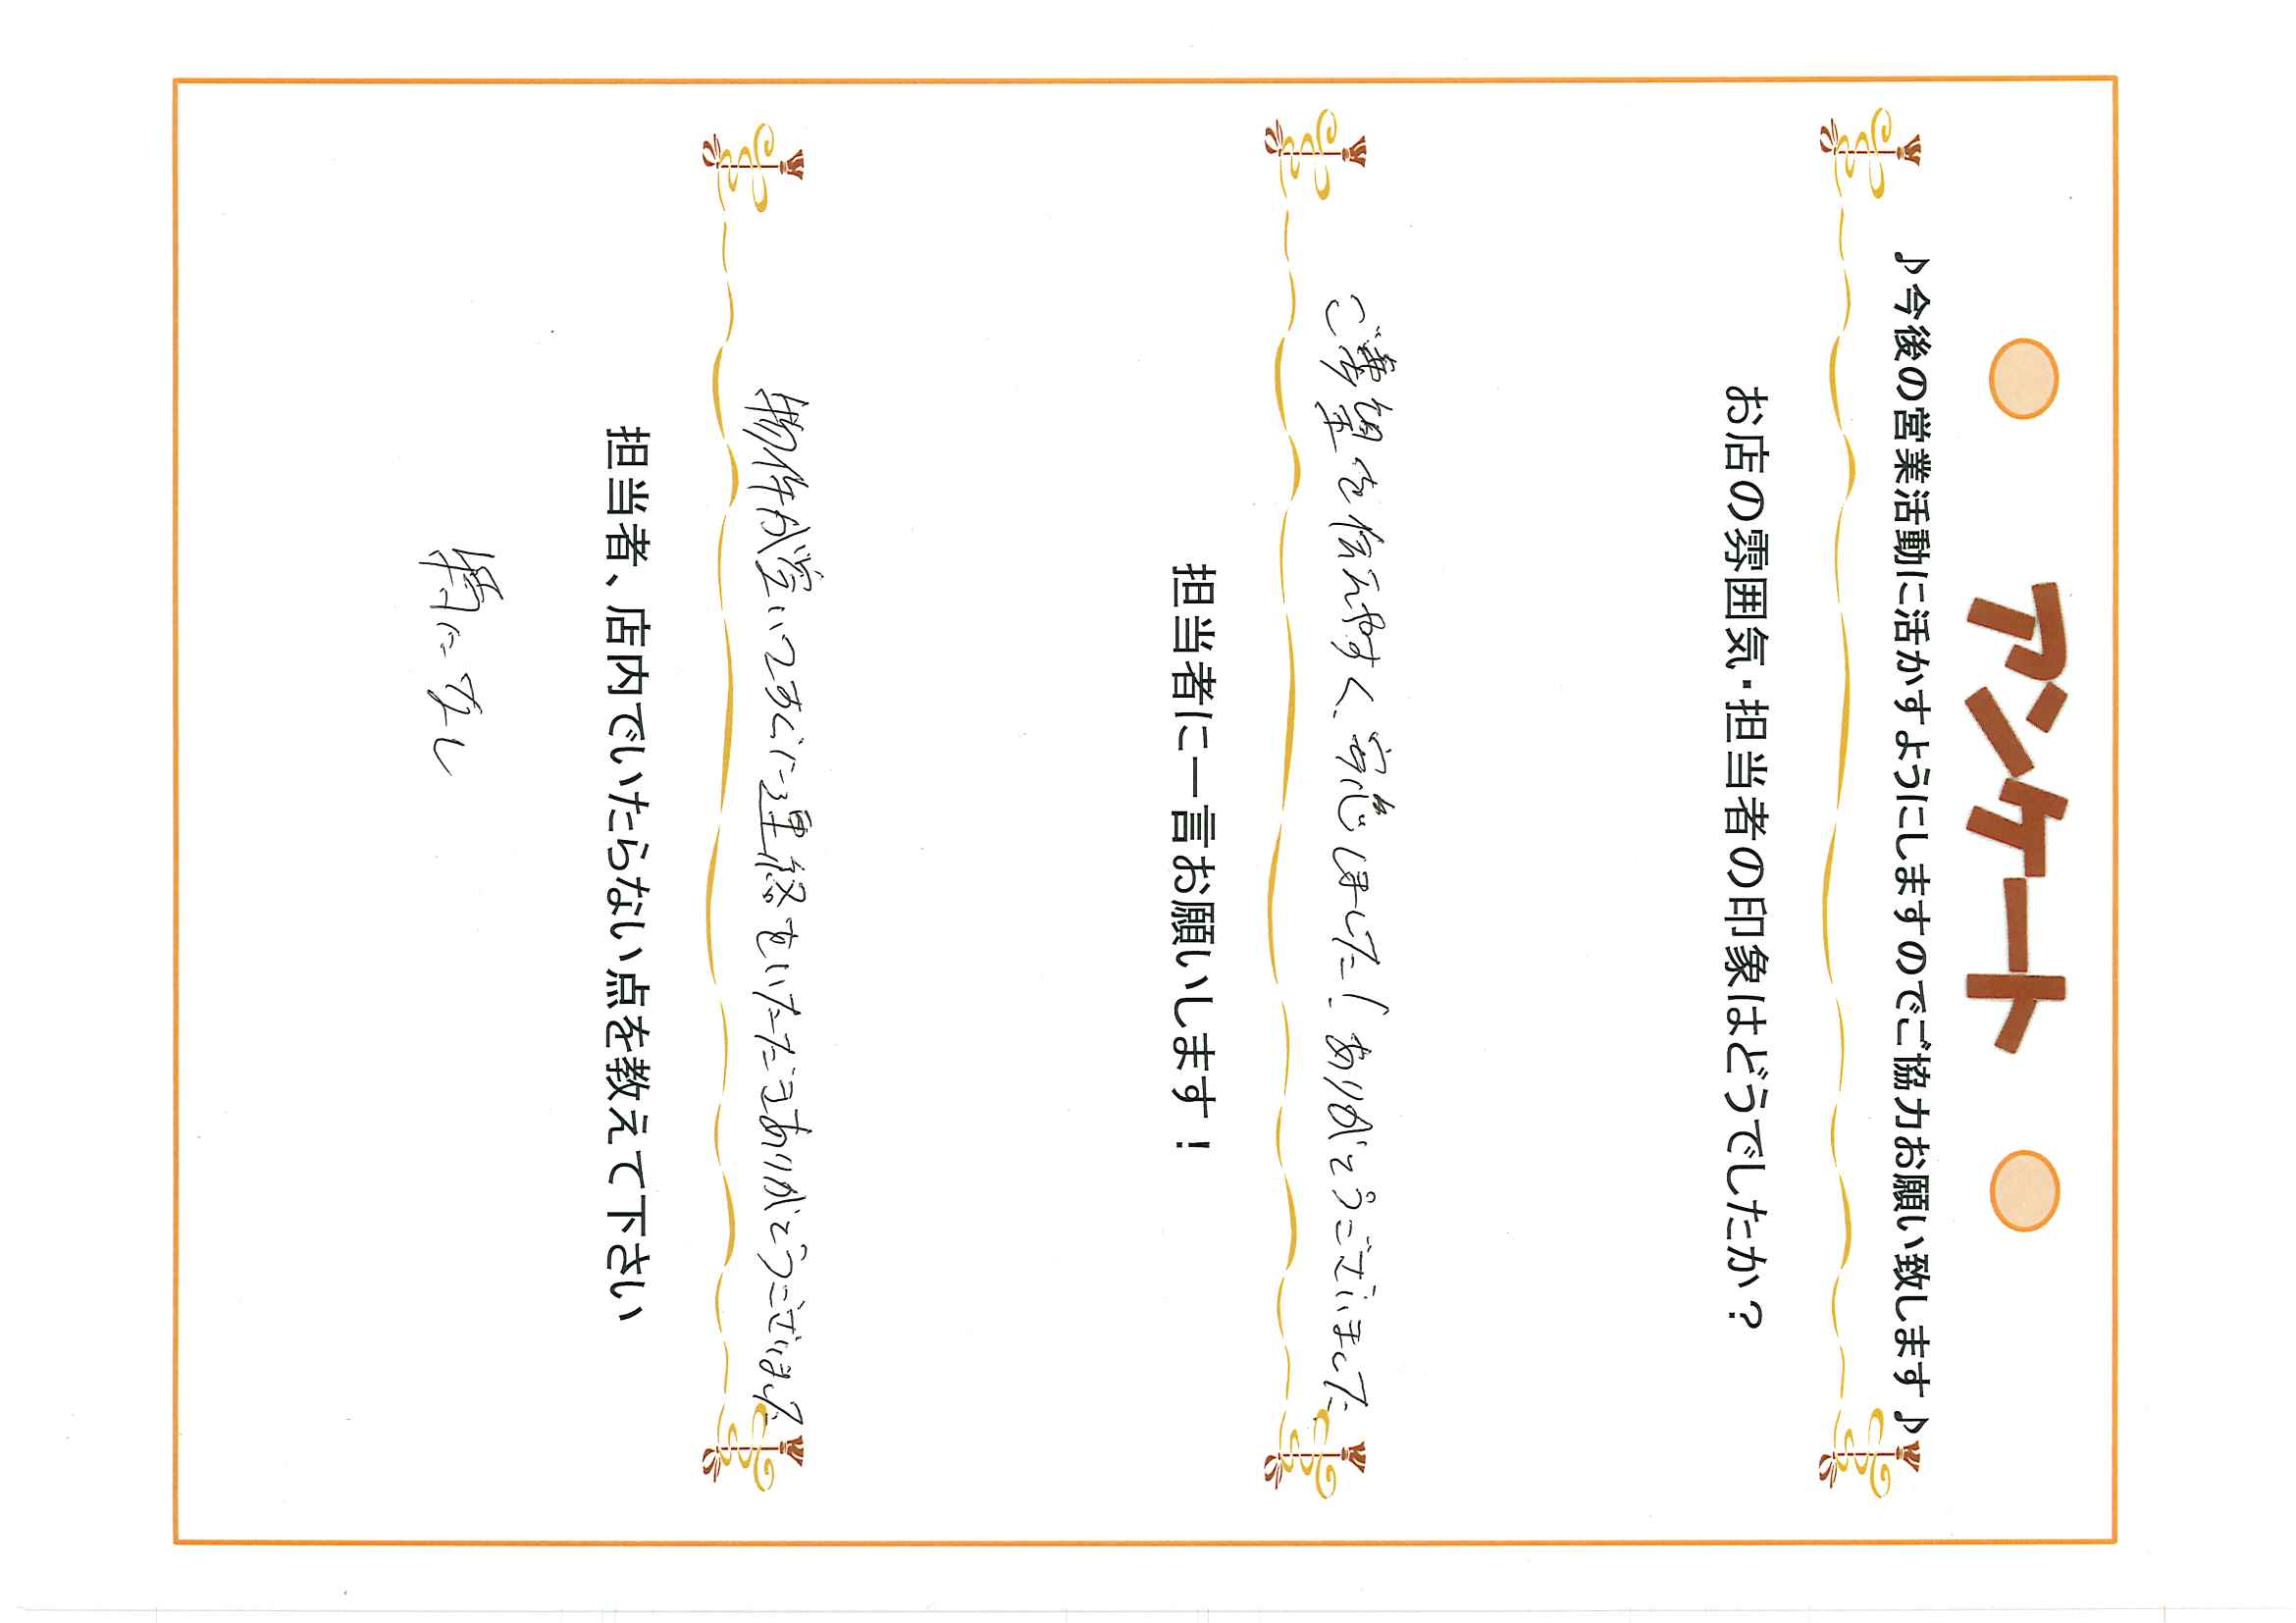 アンケート
♪今後の営業活動に活かすようにしますのでご協力お願い致します♪
お店の雰囲気・担当者の印象はどうでしたか？
ご希望を伝えやすく、しました！ありがとうございました
担当者に一言お願いします！
物件が空いてすぐに連絡をいただきありがとうございました
担当者、店内でいたらない点を教えて下さい
特になし